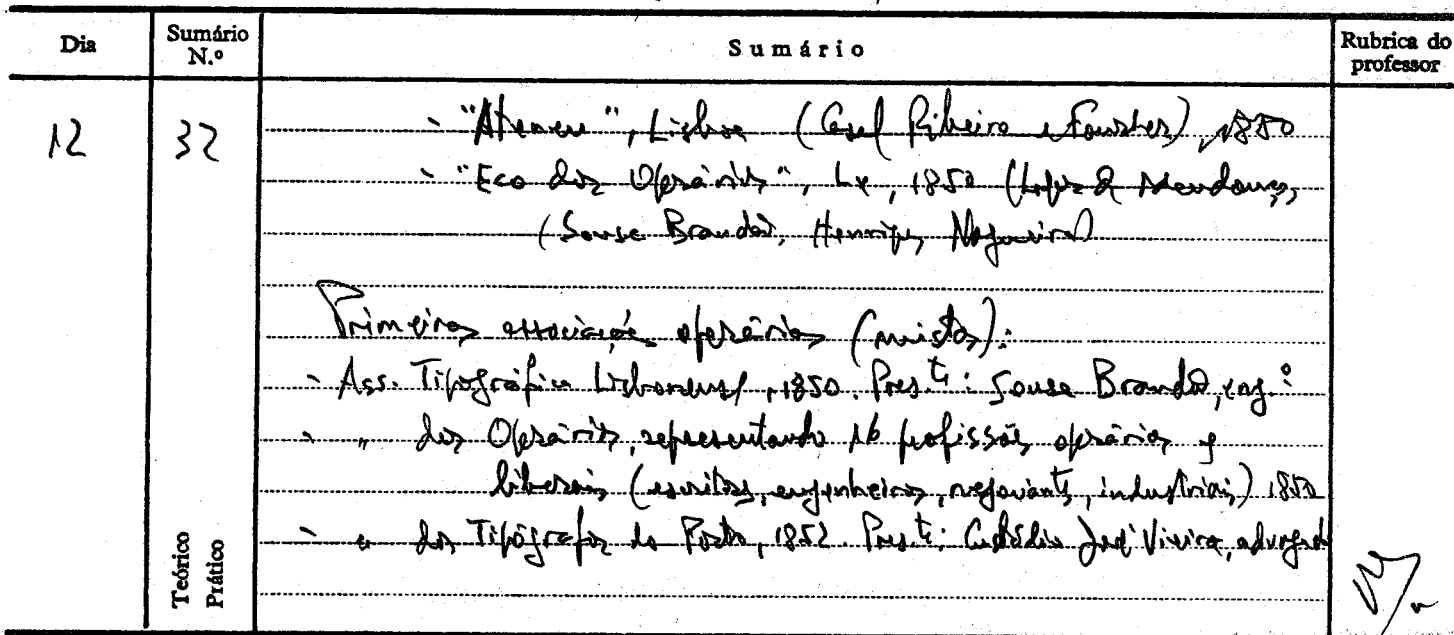 Dia
Sumário N.º
Sumário
Rubrica do professor
12
32
- "Ateneu", Lisboa (Casal Ribeiro e Fouster), 1850
- "Eco dos Operários", Lx, 1850 (Lopes de Mendonça,
(Sousa Brandão, Henriques Nogueira)
Primeiras associações operárias (mistas):
- Ass. Tipográfica Lisbonense, 1850. Pres.te: Sousa Brandão, eng.º
- " dos Operários, representando 16 profissões operárias e
liberais (escritores, engenheiros, negociantes, industriais) 1850
- " dos Tipógrafos do Porto, 1852. Pres.te: Custódio José Vieira, advogado
Teórico
Prático